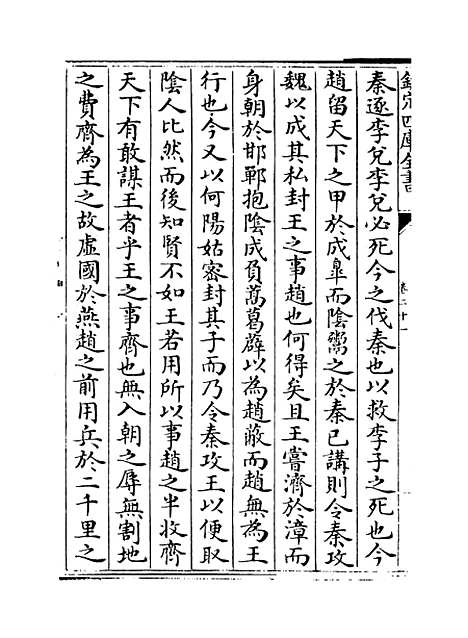 欽定四庫全書
卷二十一
秦逐李兌李兌必死今之伐秦也以救李子之死也今
趙留天下之甲於成臯而陰鬻之於秦已講則令秦攻
魏以成其私封王之事趙也何得矣且王嘗濟於漳而
身朝於邯鄲抱陰成負蒿葛薜以為趙蔽而趙無為王
行也今又以何陽姑密封其子而乃令秦攻王以便取
陰人比然而後知賢不如王若用所以事趙之半收齊
天下有敢謀王者乎王之事齊也無入朝之辱無割地
之費齊為王之故虛國於燕趙之前用兵於二千里之